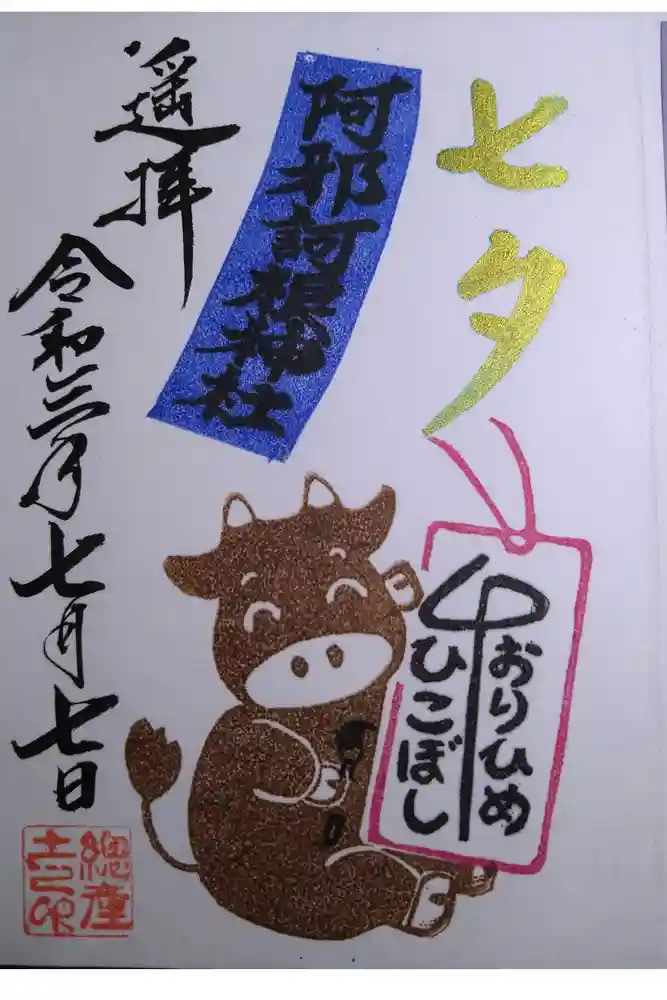 七夕
阿邪訶根神社
遥拝
令和三年七月七日
おりひめ
ひこぼし
總産